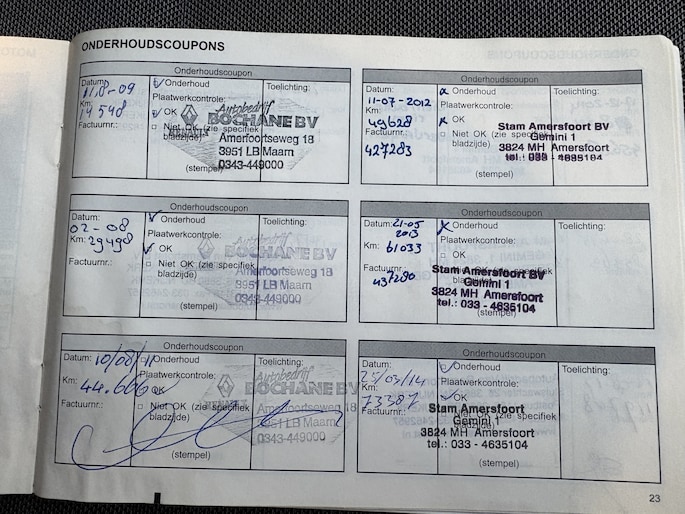 ONDERHOUDSCOUPONS
Onderhoudscoupon
Datum: 11.8-09
Onderhoud
Toelichting:
Km: 14548
Plaatwerkcontrole:
OK
Factuurnr.:
Niet OK (zie specifiek
bladzijde)
Autobedrijf
BOCHANE BV
RENAULT
Amerfoortseweg 18
3951 LB Maarn
0343-449000
(stempel)
Onderhoudscoupon
Datum: 02-08
Onderhoud
Toelichting:
Plaatwerkcontrole:
Km: 29498
OK
Factuurnr.:
Niet OK (zie specifiek
bladzijde)
BOCHANE BV
Amerfoortseweg 18
3951 LB Maarn
0343-449000
(stempel)
Onderhoudscoupon
Datum: 10/08/11
Onderhoud
Toelichting:
Km: 44.666
Plaatwerkcontrole:
OK
Factuurnr.:
Niet OK (zie specifiek
bladzijde)
Autobedrijf
BOCHANE BV
Amerfoortseweg 18
3951 LB Maarn
0343-449000
(stempel)
Onderhoudscoupon
Datum:
11-07-2012
Onderhoud
Toelichting:
Km:
49628
Plaatwerkcontrole:
OK
Factuurnr.:
427283
Niet OK (zie specifiek
bladzijde)
Stam Amersfoort BV
Gemini 1
3824 MH Amersfoort
tel.: 033 - 4635104
(stempel)
Onderhoudscoupon
Datum: 21-05
2013
Onderhoud
Toelichting:
Plaatwerkcontrole:
Km: 61033
OK
Factuurnr.:
437290
Niet OK (zie specifiek
bladzijde)
Stam Amersfoort BV
Gemini 1
3824 MH Amersfoort
tel.: 033 - 4635104
(stempel)
Onderhoudscoupon
Datum:
25/03/14
Onderhoud
Toelichting:
Km:
73387
Plaatwerkcontrole:
OK
Factuurnr.:
Niet OK (zie specifiek
bladzijde)
Stam Amersfoort
Gemini 1
3824 MH Amersfoort
tel.: 033 - 4635104
(stempel)
23